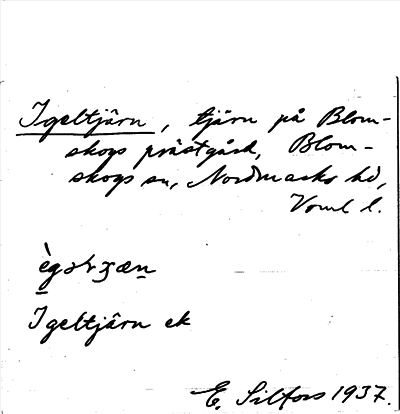 Igeltjärn, tjärn på Blom-
skogs prästgård, Blom-
skogs sn, Nordmarks hd,
Verml l.
Igeltjärn ek
E. Silfors 1937.